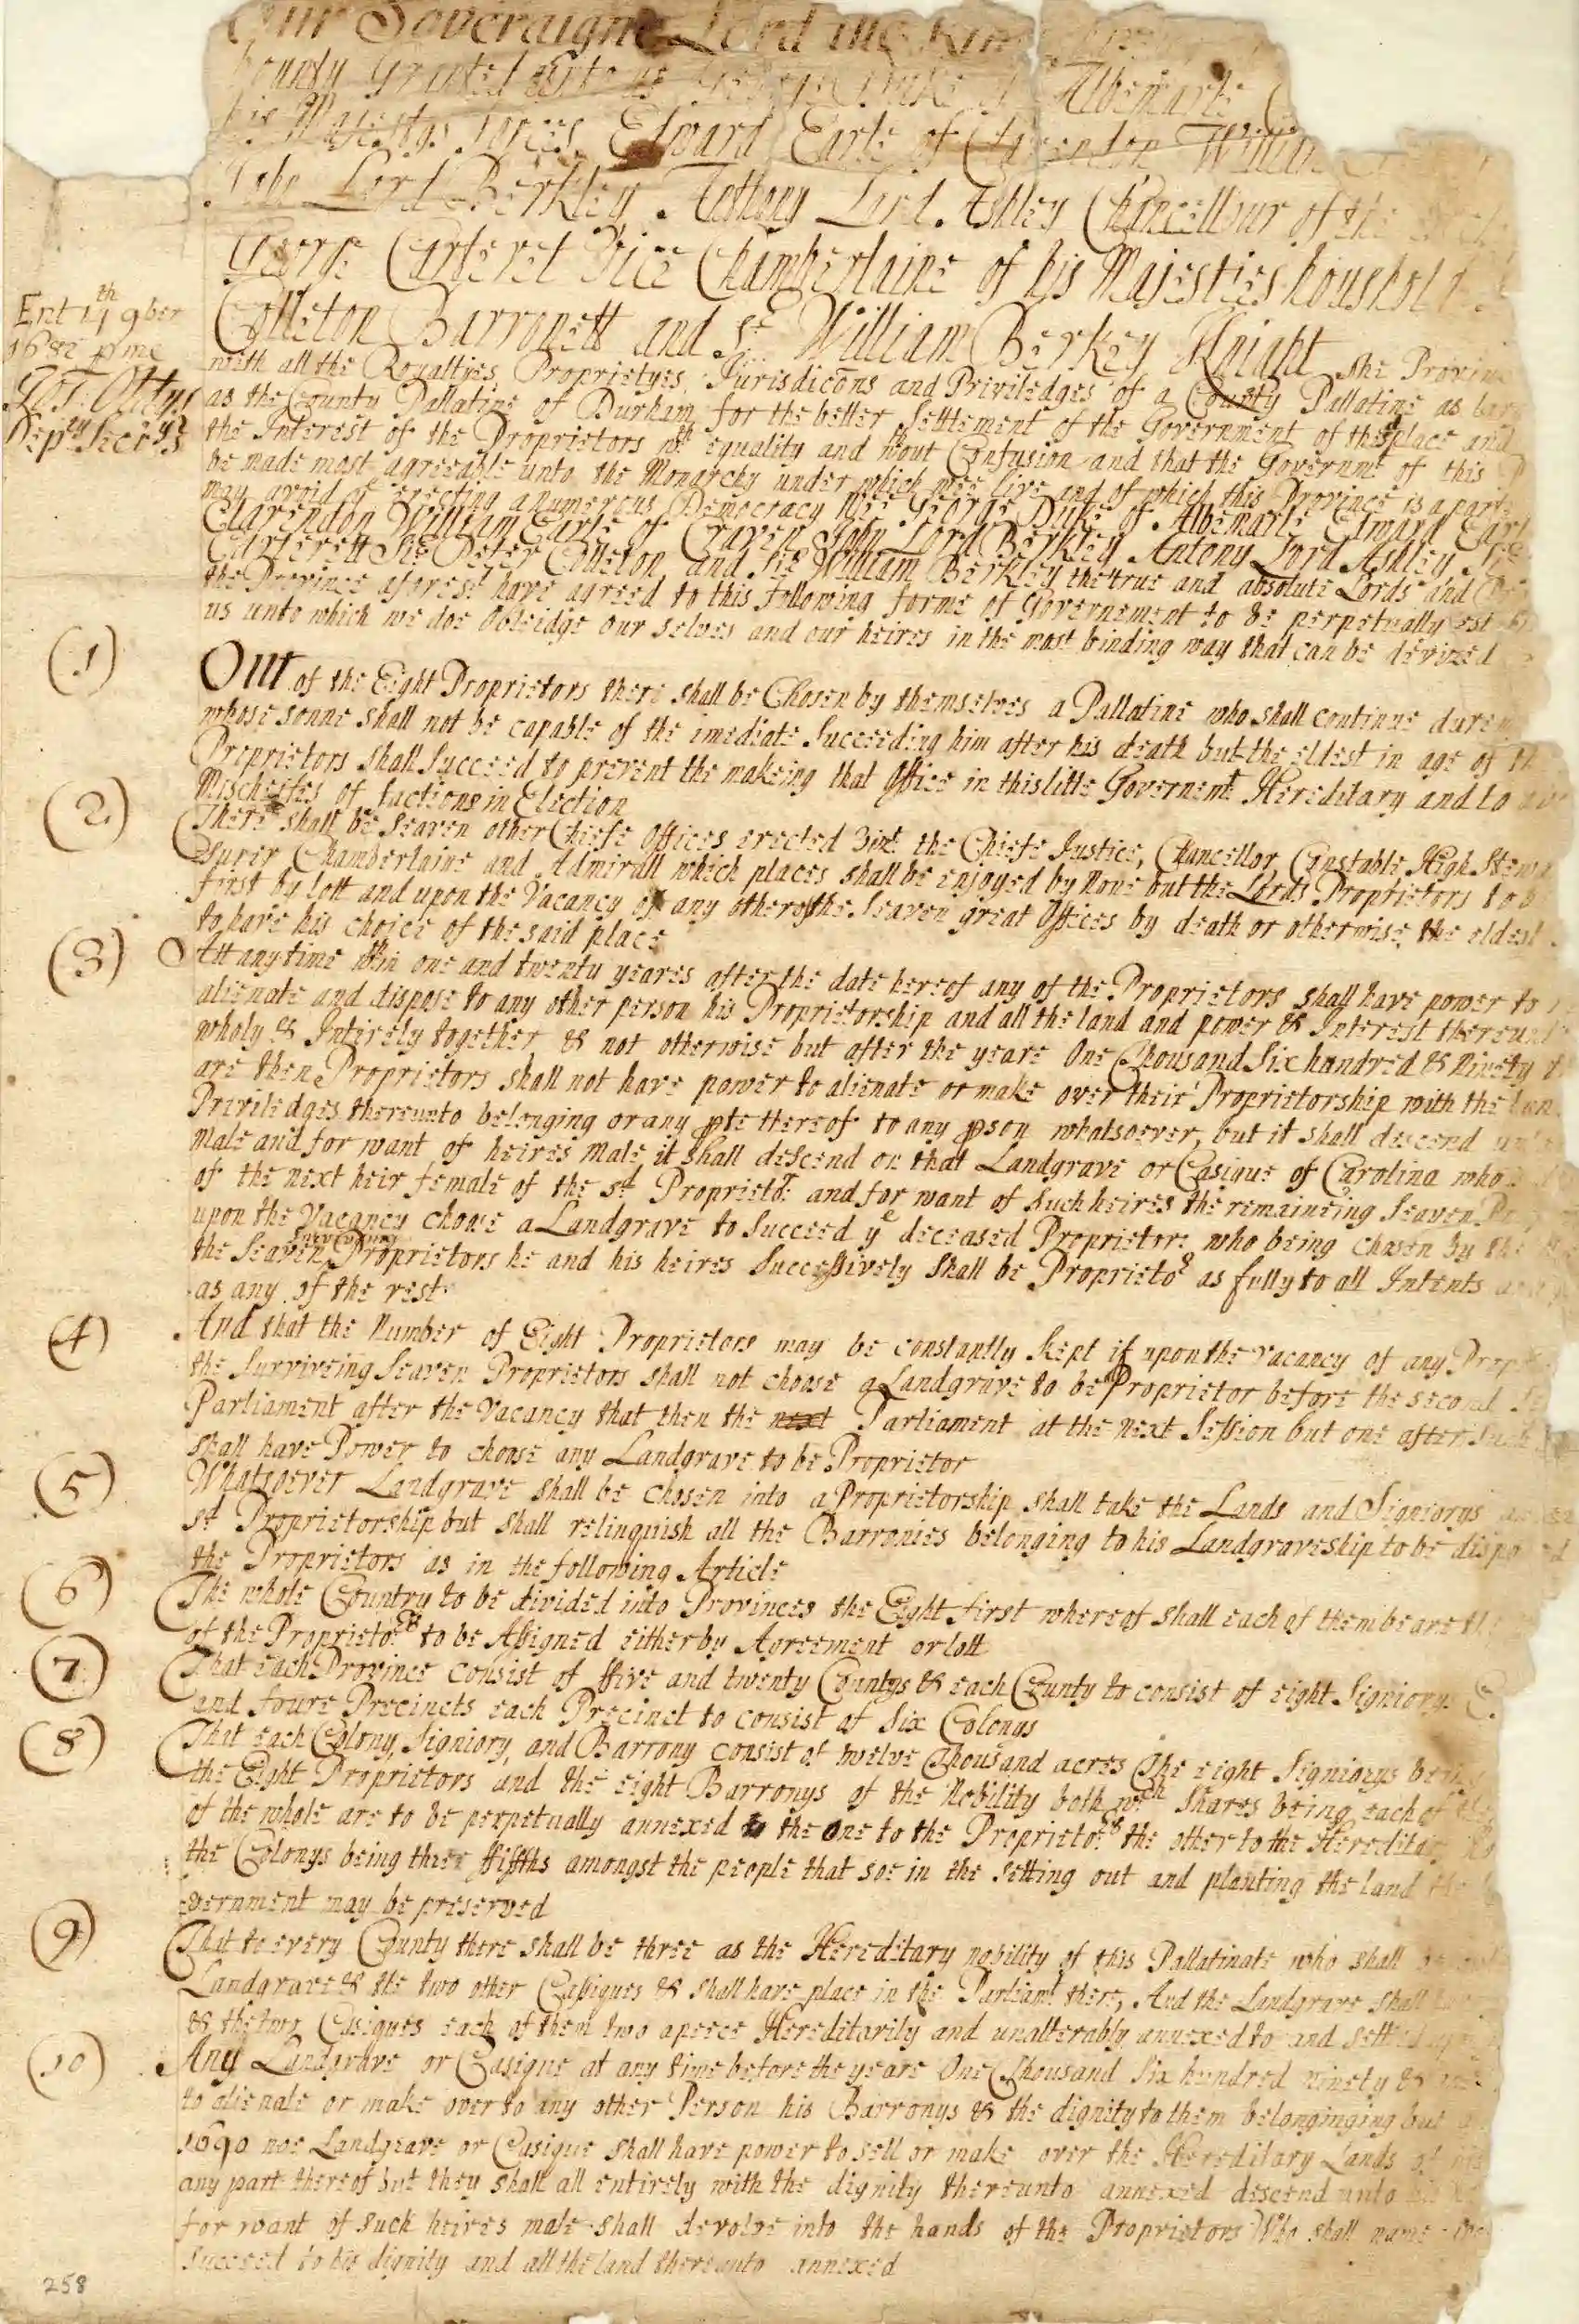 Our Soveraigne Lord the King
bounty Granted unto us George Duke of Albemarle
his Majestys forces, Edward Earle of Clarendon William
John Lord Berkley, Anthony Lord Ashley Chancellour of the
George Carteret Vice Chamberlaine of his Majesties houshold
Colleton Barronett and Sr William Berkey Knight the Province
with all the Royaltyes, Proprietyes, Jurisdicōns and Priviledges of a County Pallatine as large
as the County Pallatine of Durham, for the better Settlement of the Government of the place and
the Interest of the Proprietors wth equality and wthout Confusion and that the Governmt of this
be made most agreeable unto the Monarchy under which wee live and of which this Province is a part
may avoid erecting a numerous Democracy Wee George Duke of Albemarle Edward Earle
Clarendon William Earle of Craven John Lord Berkley Antony Lord Ashley Sr
Carterett Sir Peter Colleton and Sir William Berkley the true and absolute Lords and
the Province aforesd have agreed to this following forme of Governement to be perpetually est
us unto which we doe Obleidge our selves and our heires in the most binding way that can be devized
Ent 14th 9ber
1682 p me
Depty Secrys
(1) Out of the Eight Proprietors there shall be Chosen by themselves a Pallatine who shall continue dureing
whose sonne shall not be capable of the imediate Succeeding him after his death but the eldest in age of the
Proprietors shall Succeed to prevent the makeing that Office in this litle Governemt Hereditary and to
Mischeifes of factions in Election
(2) There shall be Seaven other Cheife Offices erected Vizt the Cheife Justice, Chancellor, Constable, High Stew
surer Chamberlaine and Admirall which places shall be enjoyed by None but the Lords Proprietors to
first by lott and upon the Vacancy of any other of the Seaven great Offices by death or otherwise, the eldest
to have his choice of the said place
(3) Att any time wthin one and twenty yeares after the date hereof any of the Proprietors shall have power to
alienate and dispose to any other person his Proprietorship and all the land and power & Interest thereunto
wholy & Intirely together & not otherwise but after the yeare One Thousand Six hundred & Ninety
are then Proprietors shall not have power to alienate or make over their Proprietorship with the
Priviledges thereunto belonging or any pte thereof to any pson whatsoever, but it shall descend unto
Male and for want of heires Male it shall descend on that Landgrave or Casique of Carolina who
of the next heir female of the sd Proprietor and for want of such heires the remaineing Seaven
upon the Vacancy choose a Landgrave to Succeed ye deceased Proprietor who being chosen by the
Surviveing
the Seaven Proprietors he and his heires Successively Shall be Proprietor as fully to all Intents
as any of the rest
(4) And that the Number of Eight Proprietors may be constantly kept if upon the vacancy of any
the Surviveing Seaven Proprietors shall not choose a Landgrave to be Proprietor before the second
Parliament after the Vacancy that then the next Parliament at the Next Session but one after such
shall have Power to choose any Landgrave to be Proprietor
(5) Whatsoever Landgrave shall be chosen into a Proprietorship shall take the Lands and Signiorys
sd Proprietorship but shall relinquish all the Barronies belonging to his Landgraveship to be disposed
the Proprietors as in the following Article
(6) The whole Country to be divided into Provinces the Eight first whereof shall each of them beare the
of the Proprietors to be Assigned either by Agreement or lott
(7) That each Province consist of ffive and twenty Countys & each County to consist of eight Signiorys
and foure Precincts each Precinct to consist of Six Colonys
(8) That each Colony, Signiory, and Barrony consist of twelve Thousand acres The eight Signiorys being
the Eight Proprietors and the eight Barronys of the Nobility both wch Shares being each of
of the whole are to be perpetually annexed the One to the Proprietors the other to the Hereditary
the Colonys being three ffiffths amongst the people that soe in the setting out and planting the land
vernment may be preserved
(9) That to every County there shall be three as the Hereditary nobility of this Pallatinate who shall be
Landgrave & the two other Cassiques & shall have place in the Parliamt there, And the Landgrave shall
& the two Casiques each of them two apeece Hereditarily and unalterably annexed to and settled
(10) Any Landgrave or Casique at any time before the yeare One Thousand Six hundred ninety &
to alienate or make over to any other Person his Barronys & the dignity to them belonginging but
1690 noe Landgrave or Casique shall have power to sell or make over the Hereditary Lands of
any part thereof but they shall all entirely with the dignity thereunto annexed descend unto
for want of such heires male shall devolve into the hands of the Proprietors Who shall name
succeed to his dignity and all the land thereunto annexed
258